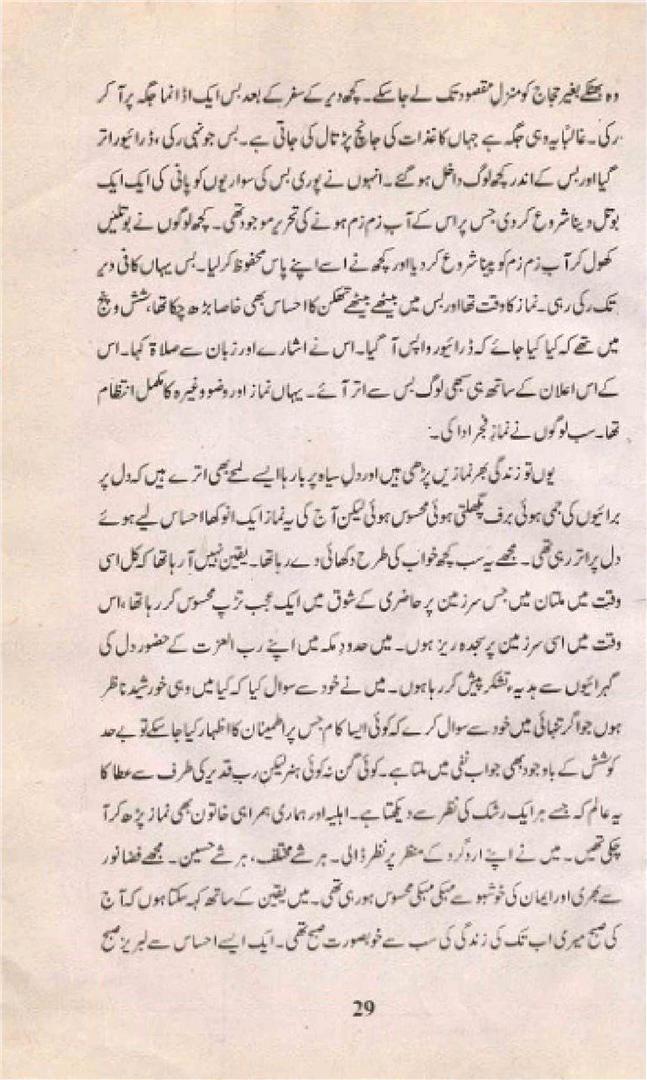 وہ بھٹکے بغیر حجاج کو منزل مقصود تک لے جا سکے۔ کچھ دیر کے سفر کے بعد بس ایک اڈا نما جگہ پر آ کر
رکی۔ غالباً یہ وہی جگہ ہے جہاں کاغذات کی جانچ پڑتال کی جاتی ہے۔ بس جونہی رکی، ڈرائیور اتر
گیا اور بس کے اندر کچھ لوگ داخل ہو گئے۔ انہوں نے پوری بس کی سواریوں کو پانی کی ایک ایک
بوتل دینا شروع کر دی جس پر اس کے آب زم زم ہونے کی تحریر موجود تھی۔ کچھ لوگوں نے بوتلیں
کھول کر آب زم زم کو پینا شروع کر دیا اور کچھ نے اسے اپنے پاس محفوظ کر لیا۔ بس یہاں کافی دیر
تک رکی رہی۔ نماز کا وقت تھا اور بس میں بیٹھے بیٹھے تھکن کا احساس بھی خاصا بڑھ چکا تھا، شش و پنج
میں تھے کہ کیا کیا جائے کہ ڈرائیور واپس آ گیا۔ اس نے اشارے اور زبان سے صلاۃ کہا۔ اس
کے اس اعلان کے ساتھ ہی سبھی لوگ بس سے اتر آئے۔ یہاں نماز اور وضو وغیرہ کا مکمل انتظام
تھا۔ سب لوگوں نے نمازِ فجر ادا کی۔
یوں تو زندگی بھر نمازیں پڑھی ہیں اور دل سیاہ پر بارہا ایسے لمحے بھی اترے ہیں کہ دل پر
برائیوں کی جمی ہوئی برف پگھلتی ہوئی محسوس ہوئی لیکن آج کی یہ نماز ایک انوکھا احساس لیے ہوئے
دل پر اتر رہی تھی۔ مجھے یہ سب کچھ خواب کی طرح دکھائی دے رہا تھا۔ یقین نہیں آ رہا تھا کہ کل اسی
وقت میں ملتان میں جس سرزمین پر حاضری کے شوق میں ایک عجب تڑپ محسوس کر رہا تھا، اس
وقت میں اسی سرزمین پر سجدہ ریز ہوں۔ میں حدودِ مکہ میں اپنے رب العزت کے حضور دل کی
گہرائیوں سے ہدیہء تشکر پیش کر رہا ہوں۔ میں نے خود سے سوال کیا کہ کیا میں وہی خورشید ناظر
ہوں جو اگر تنہائی میں خود سے سوال کرے کہ کوئی ایسا کام جس پر اطمینان کا اظہار کیا جا سکے تو بے حد
کوشش کے باوجود بھی جواب نفی میں ملتا ہے۔ کوئی گن نہ کوئی ہنر لیکن رب قدیر کی طرف سے عطا کا
یہ عالم کہ جسے ہر ایک رشک کی نظر سے دیکھتا ہے۔ اہلیہ اور ہماری ہمراہی خاتون بھی نماز پڑھ کر آ
چکی تھیں۔ میں نے اپنے اردگرد کے منظر پر نظر ڈالی۔ ہر شے مختلف، ہر شے حسین۔ مجھے فضا نور
سے بھری اور ایمان کی خوشبو سے مہکی مہکی محسوس ہو رہی تھی۔ میں یقین کے ساتھ کہہ سکتا ہوں کہ آج
کی صبح میری اب تک کی زندگی کی سب سے خوبصورت صبح تھی۔ ایک ایسے احساس سے لبریز صبح
29